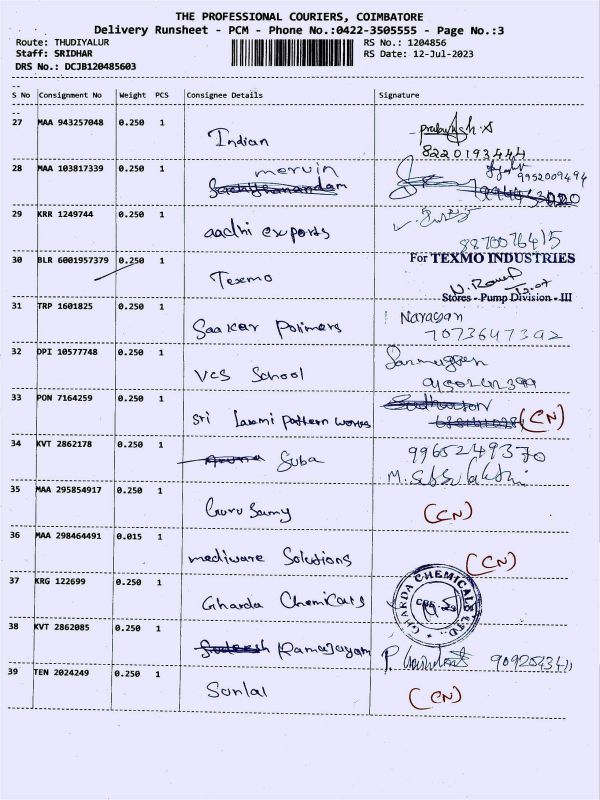 THE PROFESSIONAL COURIERS, COIMBATORE
Delivery Runsheet - PCM - Phone No.:0422-3505555 - Page No.:3
Route: THUDIYALUR RS No.: 1204856
Staff: SRIDHAR RS Date: 12-Jul-2023
DRS No.: DCJB120485603
S No Consignment No Weight PCS Consignee Details Signature
27 MAA 943257048 0.250 1 Indian
8220193444
28 MAA 103817339 0.250 1 mervin
9952009494
29 KRR 1249744 0.250 1 aadhi exports
8870076415
30 BLR 6001957379 0.250 1 Texmo
For TEXMO INDUSTRIES
Stores - Pump Division - III
31 TRP 1601825 0.250 1 Saakar Polimers
Narayan
7073647392
32 DPI 10577748 0.250 1 VCS School
33 PON 7164259 0.250 1 Sri Laxmi Pattern works (CN)
34 KVT 2862178 0.250 1 Suba
9965249370
35 MAA 295854917 0.250 1 Guru Samy (CN)
36 MAA 298464491 0.015 1 mediware Solutions (CN)
37 KRG 122699 0.250 1 Gharda Chemicals
GHARDA CHEMICALS LTD.
38 KVT 2862085 0.250 1 Ramajayam
39 TEN 2024249 0.250 1 Sunlal (CN)